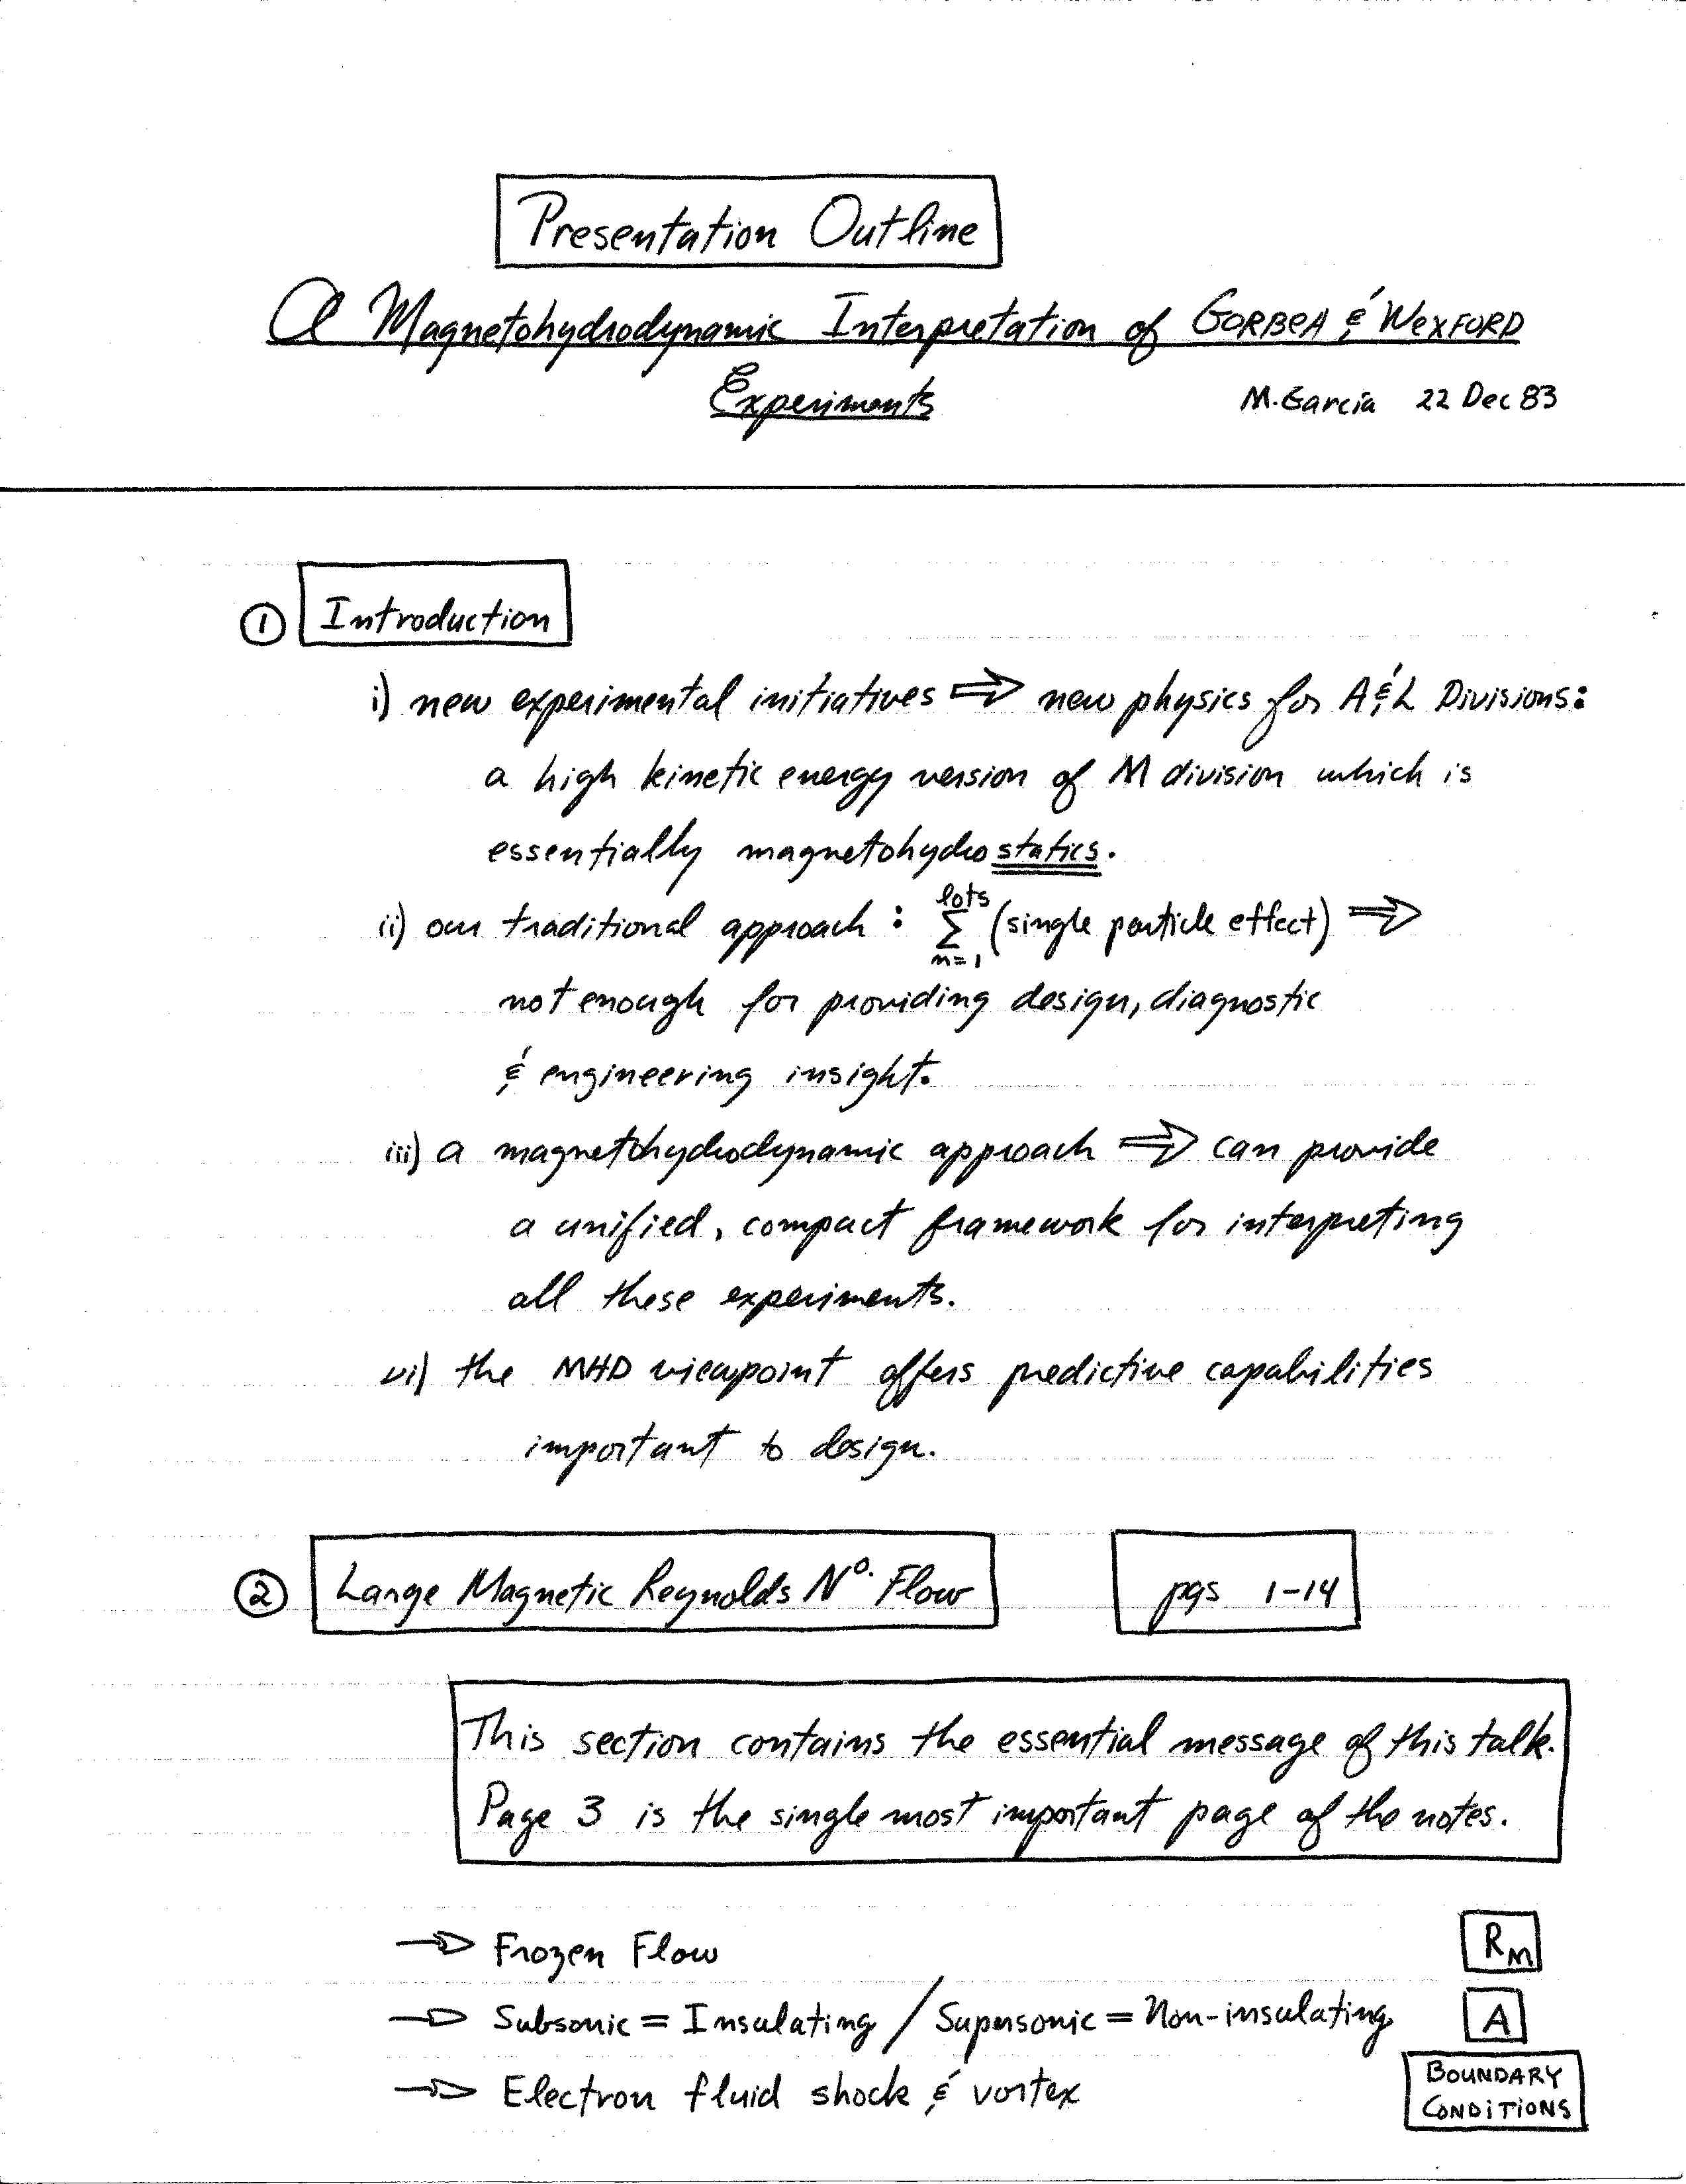 Presentation Outline
A Magnetohydrodynamic Interpretation of GORBEA & WEXFORD
Experiments M. Garcia 22 Dec 83
① Introduction
i) new experimental initiatives ⇒ new physics for A & L Divisions:
a high kinetic energy version of M division which is
essentially magnetohydrostatics.
ii) our traditional approach : lots Σ n=1 (single particle effect) ⇒
not enough for providing design, diagnostic
& engineering insight.
iii) a magnetohydrodynamic approach ⇒ can provide
a unified, compact framework for interpreting
all these experiments.
vi) the MHD viewpoint offers predictive capabilities
important to design.
② Large Magnetic Reynolds Nº. Flow pgs 1-14
This section contains the essential message of this talk.
Page 3 is the single most important page of the notes.
→ Frozen Flow RM
→ Subsonic = Insulating / Supersonic = Non-insulating A
→ Electron fluid shock & vortex BOUNDARY
CONDITIONS